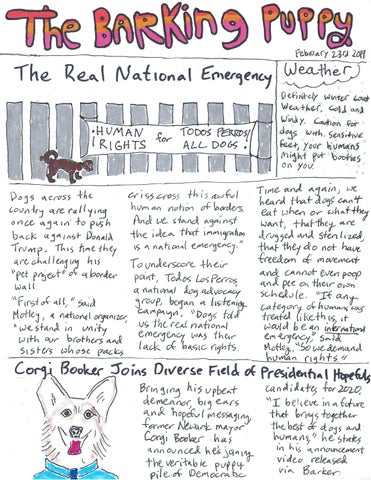 The BARKing Puppy
February 23rd 2019
The Real National Emergency
HUMAN RIGHTS for TODOS PERROS/
ALL DOGS!
Weather
Definitely winter coat
Weather. Cold and
Windy. Caution for
dogs with sensitive
feet, your humans
might put booties
on you.
Dogs across the
country are rallying
once again to push
back against Donald
Trump. This time they
are challenging his
"pet project" of a border
wall.
"First of all," said
Motley, a national organizer,
"we stand in unity
with our brothers and
sisters whose packs
crisscross this awful
human notion of borders.
And we stand against
the idea that immigration
is a national emergency."
To underscore their
point, Todos Los Perros,
a national dog advocacy
group, began a listening
campaign. "Dogs told
us the real national
emergency was their
lack of basic rights.
Time and again, we
heard that dogs can't
eat when or what they
want, that they are
drugged and sterilized,
that they do not have
freedom of movement
and cannot even poop
and pee on their own
schedule. "If any
category of humans was
treated like this, it
would be an international
emergency," said
Motley. "So we demand
human rights."
Corgi Booker Joins Diverse Field of Presidential Hopefuls
Bringing his upbeat
demeanor, big ears
and hopeful messaging,
former Newark mayor
Corgi Booker has
announced he's joining
the veritable puppy
pile of Democratic
candidates for 2020.
"I believe in a future
that brings together
the best of dogs and
humans," he states
in his announcement
video released
via Barker.